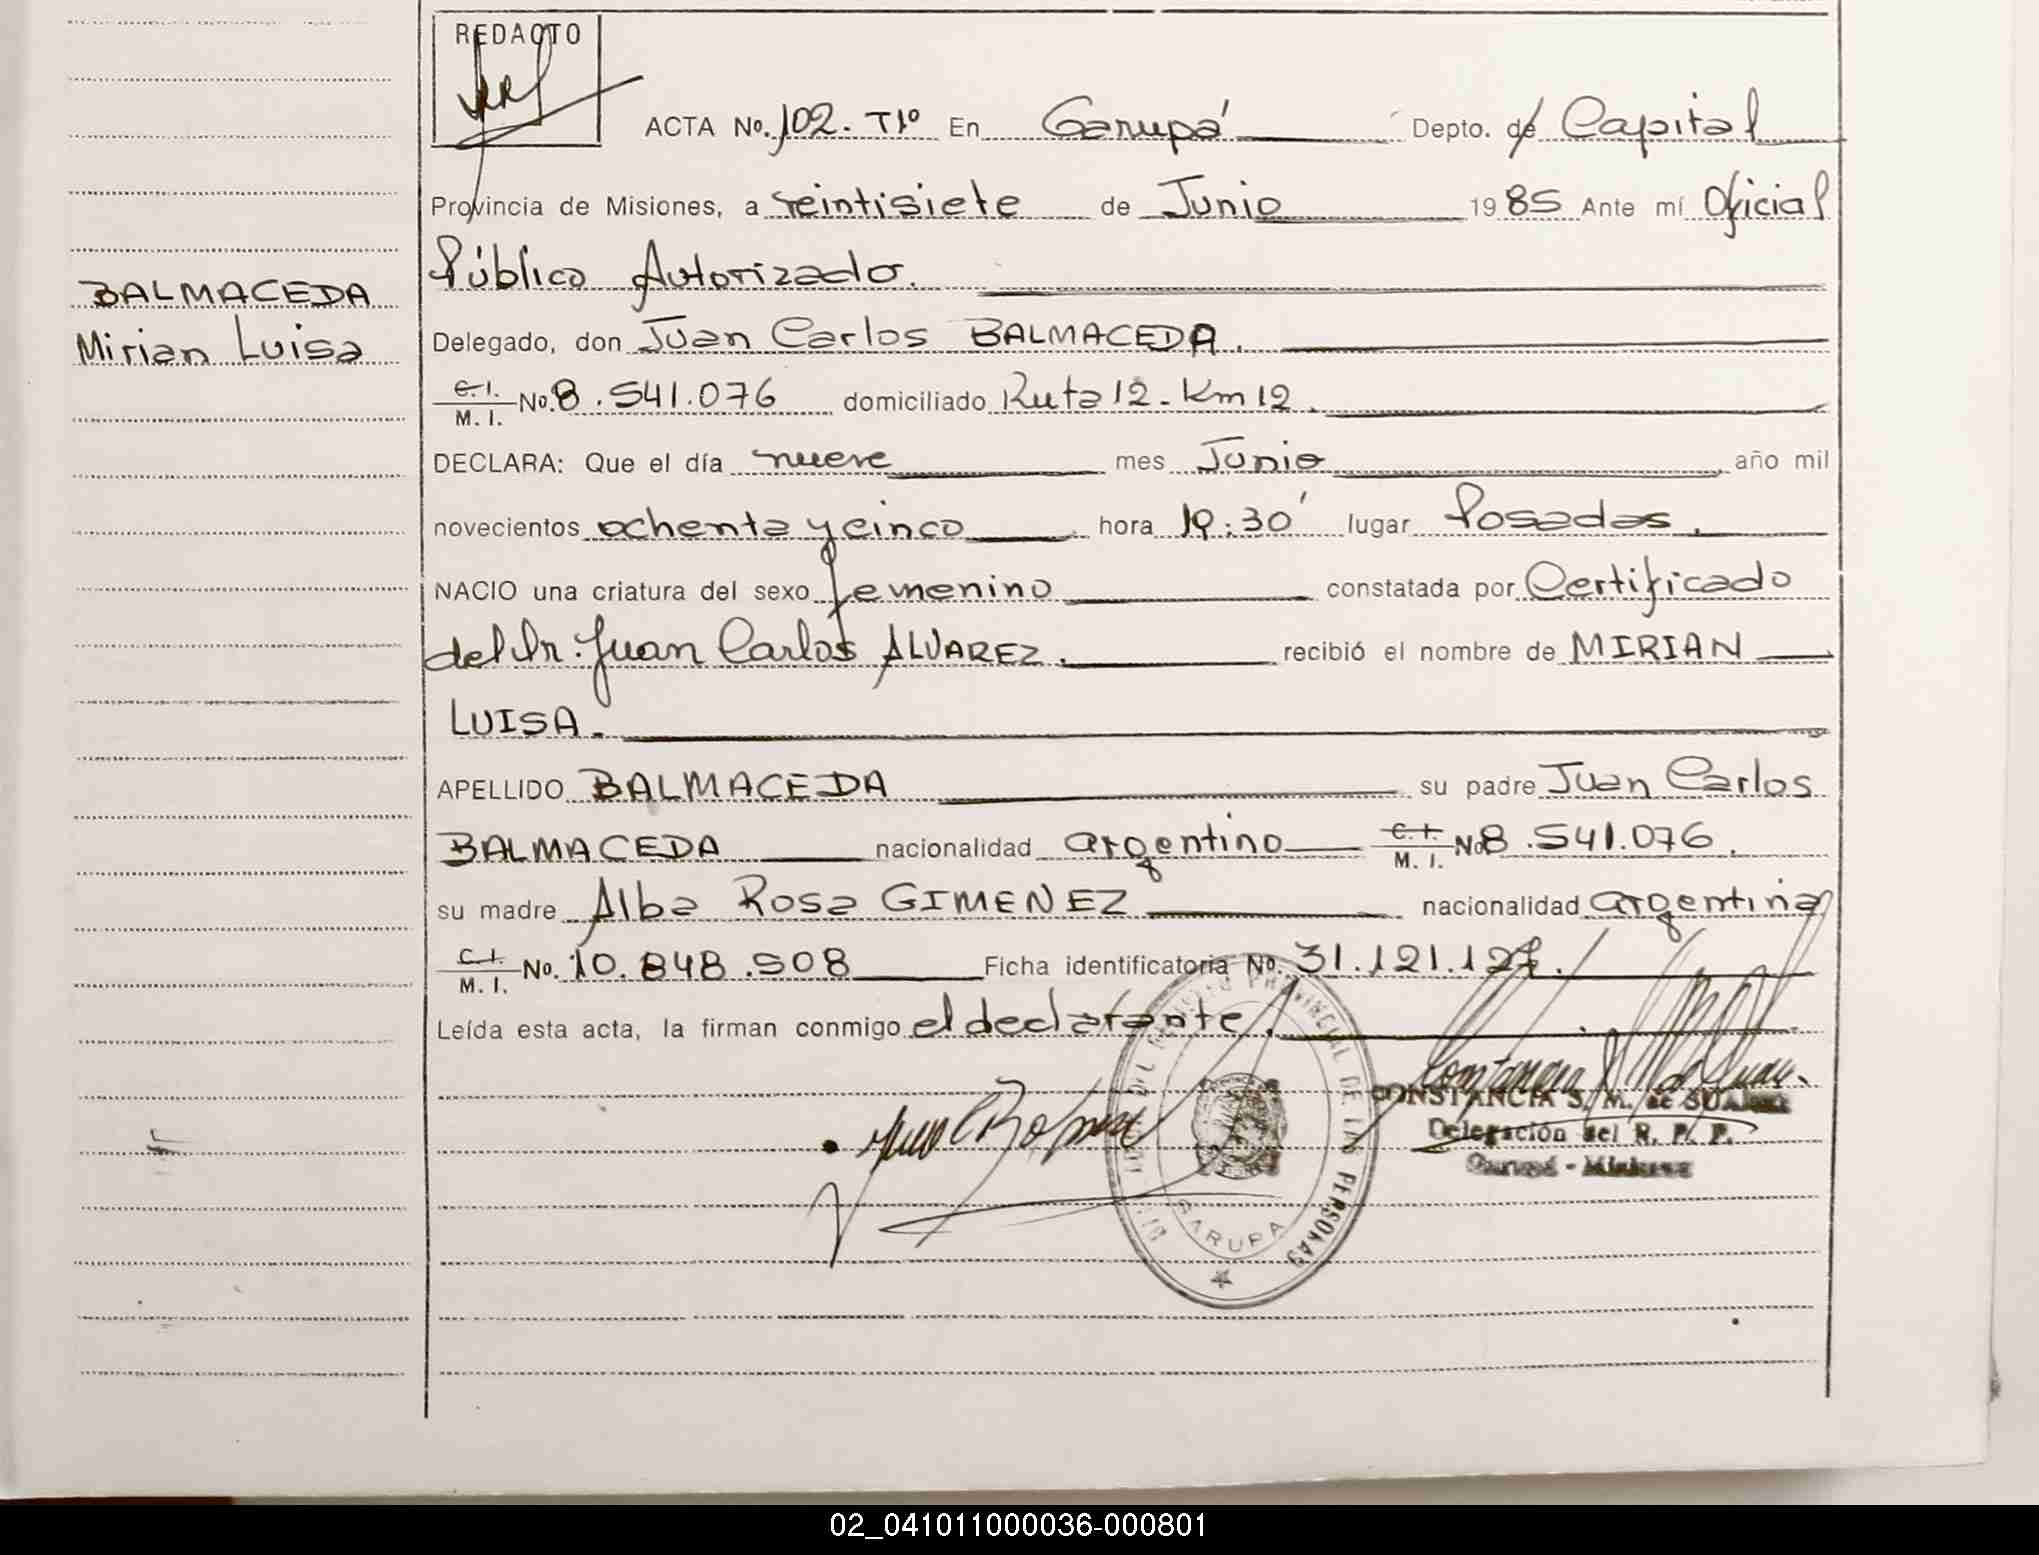 REDACTO
ACTA No. 102. T1º En Garupá Depto. de Capital
Provincia de Misiones, a veintisiete de Junio 1985 Ante mí Oficial
Público Autorizado.
BALMACEDA
Mirian Luisa
Delegado, don Juan Carlos BALMACEDA.
C.I. M.I. No. 8.541.076 domiciliado Ruta 12 - Km 12.
DECLARA: Que el día nueve mes Junio año mil
novecientos ochenta y cinco hora 19:30' lugar Posadas.
NACIO una criatura del sexo femenino constatada por Certificado
del Dr. Juan Carlos ALVAREZ. recibió el nombre de MIRIAN
LUISA.
APELLIDO BALMACEDA su padre Juan Carlos
BALMACEDA nacionalidad argentino C.I. M.I. No 8.541.076.
su madre Alba Rosa GIMENEZ nacionalidad argentina
C.I. M.I. No. 10.848.508 Ficha identificatoria No. 31.121.127.
Leída esta acta, la firman conmigo el declarante.
CONSTANCIA S. M. de
Delegación del R. P. P.
Garupá - Misiones
PROVINCIAL DE LAS PERSONAS
GARUPA
02_041011000036-000801